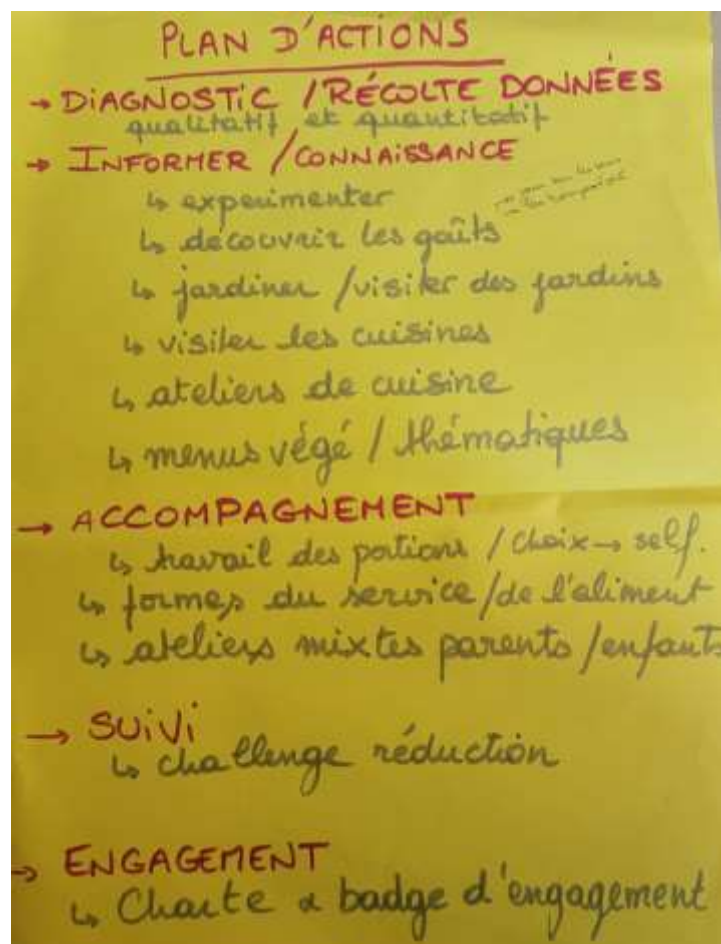 PLAN D'ACTIONS
→ DIAGNOSTIC / RÉCOLTE DONNÉES
qualitatif et quantitatif
→ INFORMER / CONNAISSANCE
↳ experimenter
↳ découvrir les goûts
↳ jardiner / visiter des jardins
↳ visiter les cuisines
↳ ateliers de cuisine
↳ menus végé / thématiques
→ ACCOMPAGNEMENT
↳ travail des portions / choix → self.
↳ formes du service / de l'aliment
↳ ateliers mixtes parents / enfants
→ SUIVI
↳ challenge réduction
→ ENGAGEMENT
↳ Charte & badge d'engagement